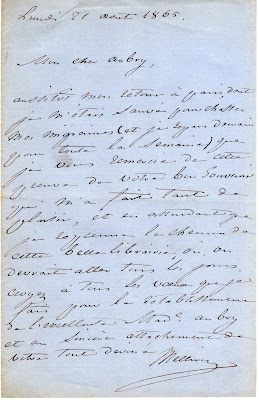 Lundi 21 aout 1865.
Mon cher Aubry,
aussitot mon retour à Paris, dont
je m'étais sauvé pour chasser
mes migraines (et je repars demain
pour toute la semaine) que
je vous remercie de cette
preuve de votre bon souvenir
qui m'a fait tant de
plaisir, et en attendant que
je reprenne le chemin de
cette belle librairie, où on
devrait aller tous les jours,
croyez à tous les vœux que je
fais pour le rétablissement
de l'excellente Made Aubry
et au sincère attachement de
votre tout dévoué